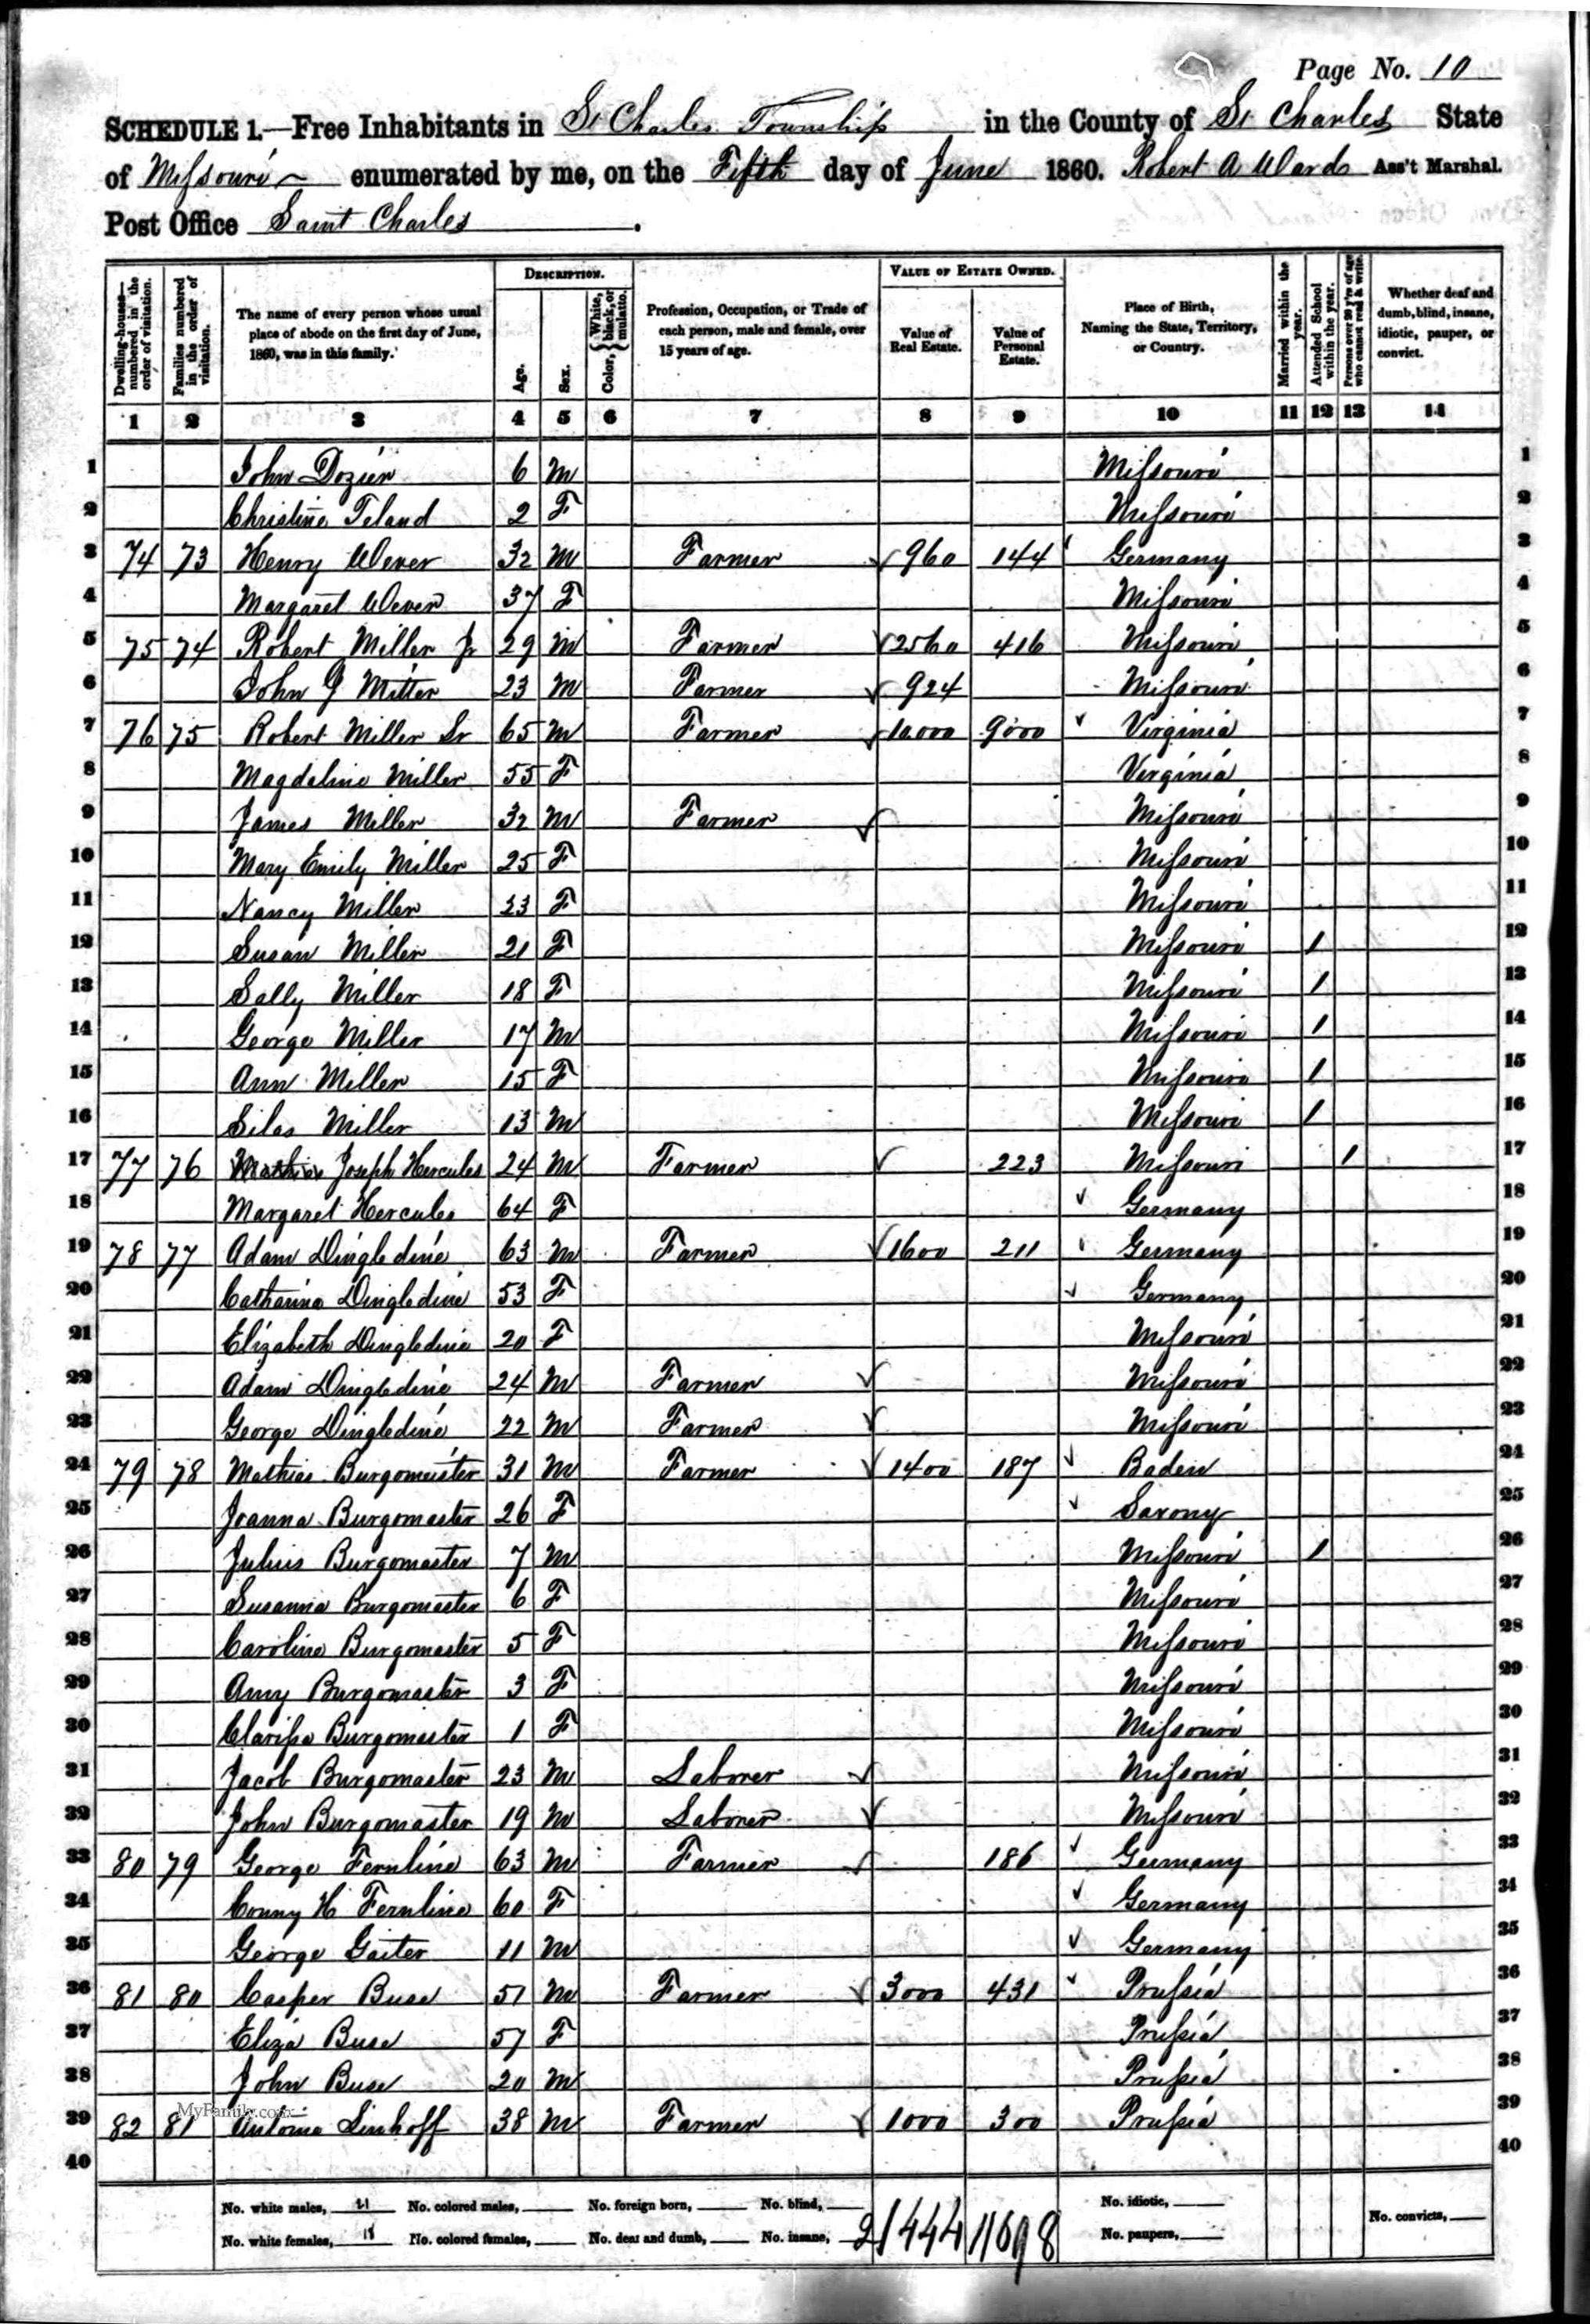 Page No. 10
SCHEDULE 1.—Free Inhabitants in St Charles Township in the County of St Charles State
of Missouri enumerated by me, on the Fifth day of June 1860. Robert A Wards Ass't Marshal.
Post Office Saint Charles.
Dwelling-houses—numbered in the order of visitation.
Families numbered in the order of visitation.
The name of every person whose usual place of abode on the first day of June, 1860, was in this family.
DESCRIPTION.
Age.
Sex.
Color, {White, black, or mulatto.
Profession, Occupation, or Trade of each person, male and female, over 15 years of age.
VALUE OF ESTATE OWNED.
Value of Real Estate.
Value of Personal Estate.
Place of Birth, Naming the State, Territory, or Country.
Married within the year.
Attended School within the year.
Persons over 20 y'rs of age who cannot read & write.
Whether deaf and dumb, blind, insane, idiotic, pauper, or convict.
1 2 3 4 5 6 7 8 9 10 11 12 13 14
1 John Dozier 6 M Missouri 1
2 Christine Teland 2 F Missouri 2
3 74 73 Henry Wever 32 M Farmer 960 144 Germany 3
4 Margaret Wever 37 F Missouri 4
5 75 74 Robert Miller Jr 29 M Farmer 2560 416 Missouri 5
6 John G Miller 23 M Farmer 924 Missouri 6
7 76 75 Robert Miller Sr 65 M Farmer 10000 9000 Virginia 7
8 Magdeline Miller 55 F Virginia 8
9 James Miller 32 M Farmer Missouri 9
10 Mary Emily Miller 25 F Missouri 10
11 Nancy Miller 23 F Missouri 11
12 Susan Miller 21 F Missouri / 12
13 Sally Miller 18 F Missouri / 13
14 George Miller 17 M Missouri / 14
15 Ann Miller 15 F Missouri / 15
16 Silas Miller 13 M Missouri / 16
17 77 76 Joseph Hercules 24 M Farmer 223 Missouri / 17
18 Margaret Hercules 64 F Germany 18
19 78 77 Adam Dingledine 63 M Farmer 1600 211 Germany 19
20 Catharine Dingledine 53 F Germany 20
21 Elizabeth Dingledine 20 F Missouri 21
22 Adam Dingledine 24 M Farmer Missouri 22
23 George Dingledine 22 M Farmer Missouri 23
24 79 78 Mathias Burgomeister 31 M Farmer 1400 187 Baden 24
25 Joanna Burgomaster 26 F Saxony 25
26 Julius Burgomaster 7 M Missouri / 26
27 Susanna Burgomaster 6 F Missouri 27
28 Caroline Burgomaster 5 F Missouri 28
29 Amy Burgomaster 3 F Missouri 29
30 Clarissa Burgomaster 1 F Missouri 30
31 Jacob Burgomaster 23 M Laborer Missouri 31
32 John Burgomaster 19 M Laborer Missouri 32
33 80 79 George Fernline 63 M Farmer 186 Germany 33
34 H Fernline 60 F Germany 34
35 George Gaiter 11 M Germany 35
36 81 80 Casper Buse 51 M Farmer 3000 431 Prussia 36
37 Eliza Buse 57 F Prussia 37
38 John Buse 20 M Prussia 38
39 82 81 Antoine Linhoff 38 M Farmer 1000 300 Prussia 39
MyFamily.com
40 40
No. white males, 21 No. colored males, No. foreign born, No. blind, 21444 11698 No. idiotic, No. convicts,
No. white females, 18 No. colored females, No. deaf and dumb, No. insane, No. paupers,